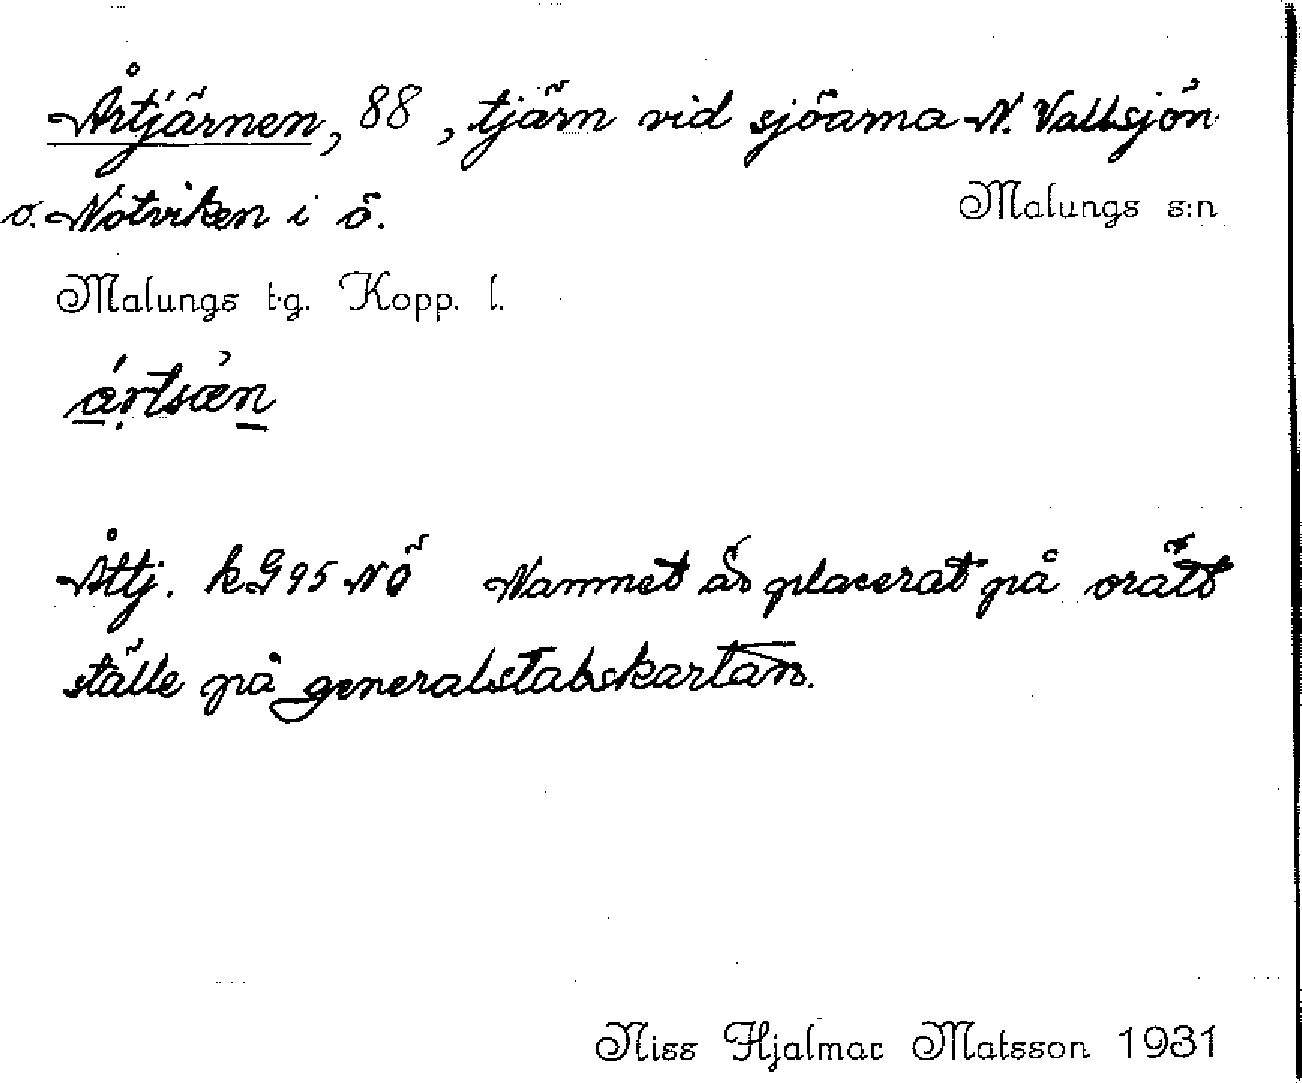 Årtjärnen, 88, tjärn vid sjöarna N. Vallsjön
o. Notviken i ö. Malungs s:n
Malungs t.g. Kopp. l.
ártsæ̀n
Åttj. kG95 NÖ Namnet är placerat på orätt
ställe på generalstabskartan.
Niss Hjalmar Matsson 1931